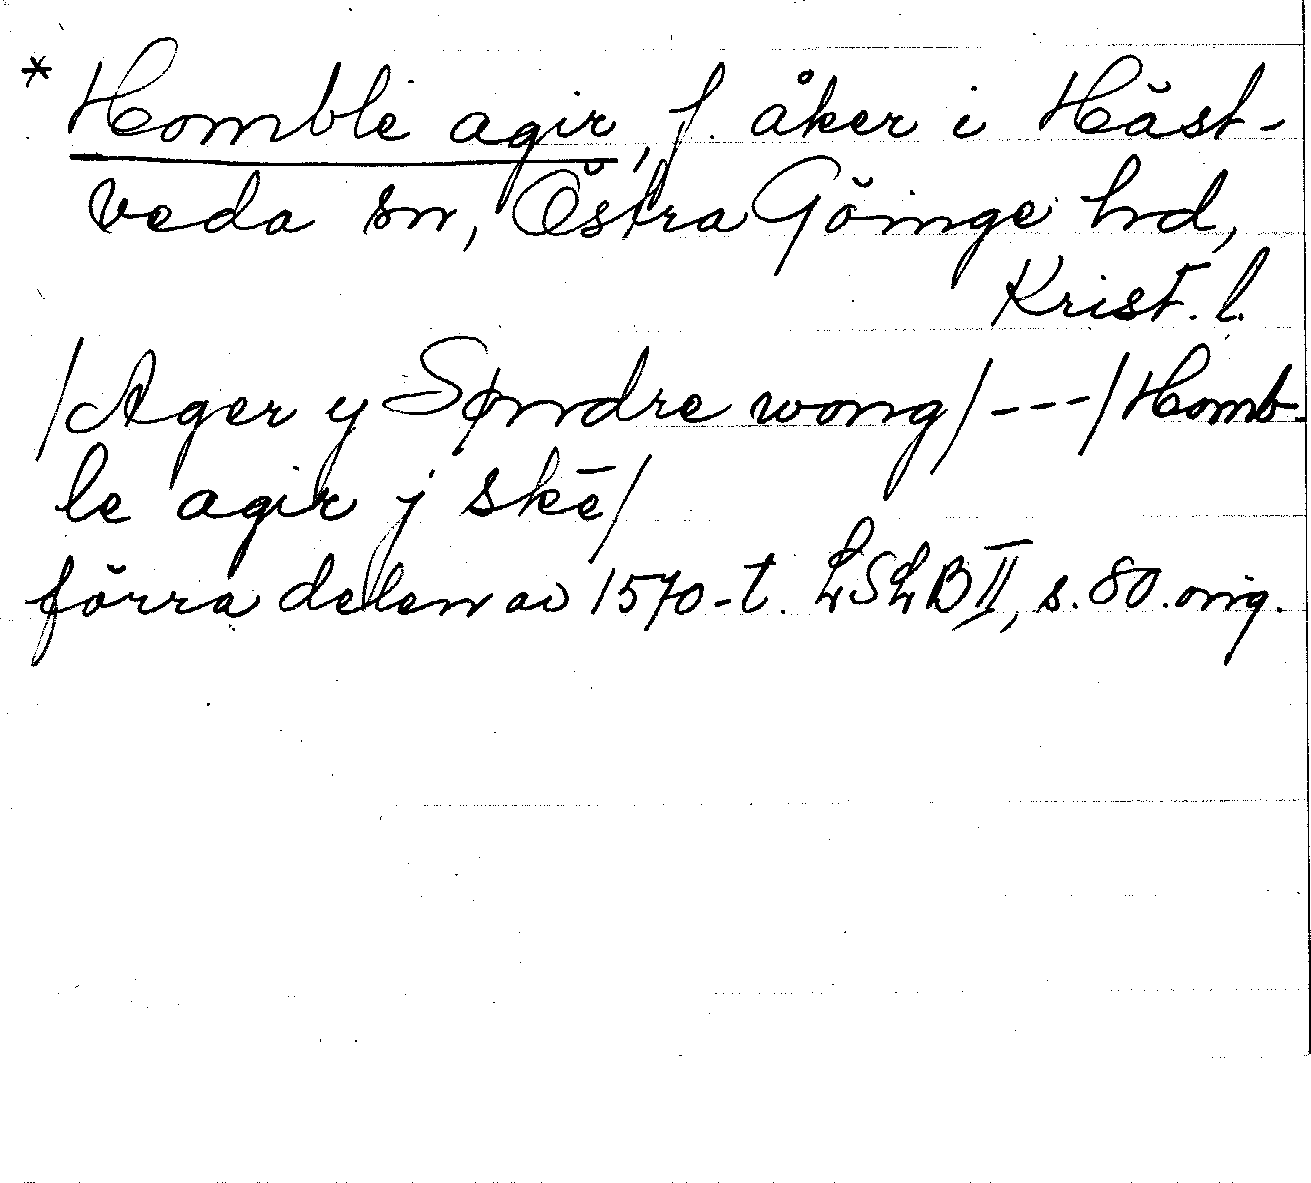 * Homble agir, f. åker i Häst-
veda sn, Östra Göinge hd,
Krist. l.
/Ager y Søndre wong/---/Homb-
le agir j skē/
förra delen av 1570-t. LSLB II, s. 80. orig.